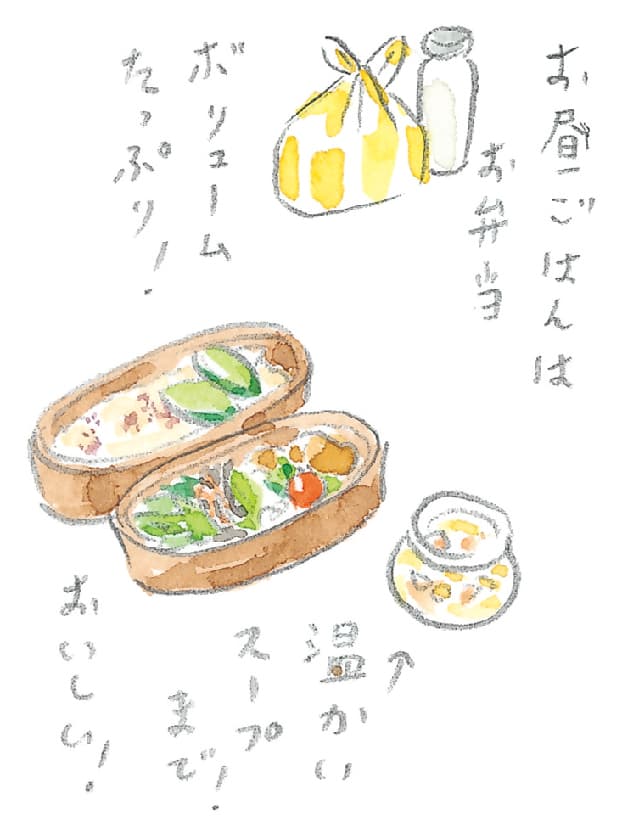 お昼ごはんは
お弁当
ボリューム
たっぷり!
温かい
スープ
まで!
おいしい!